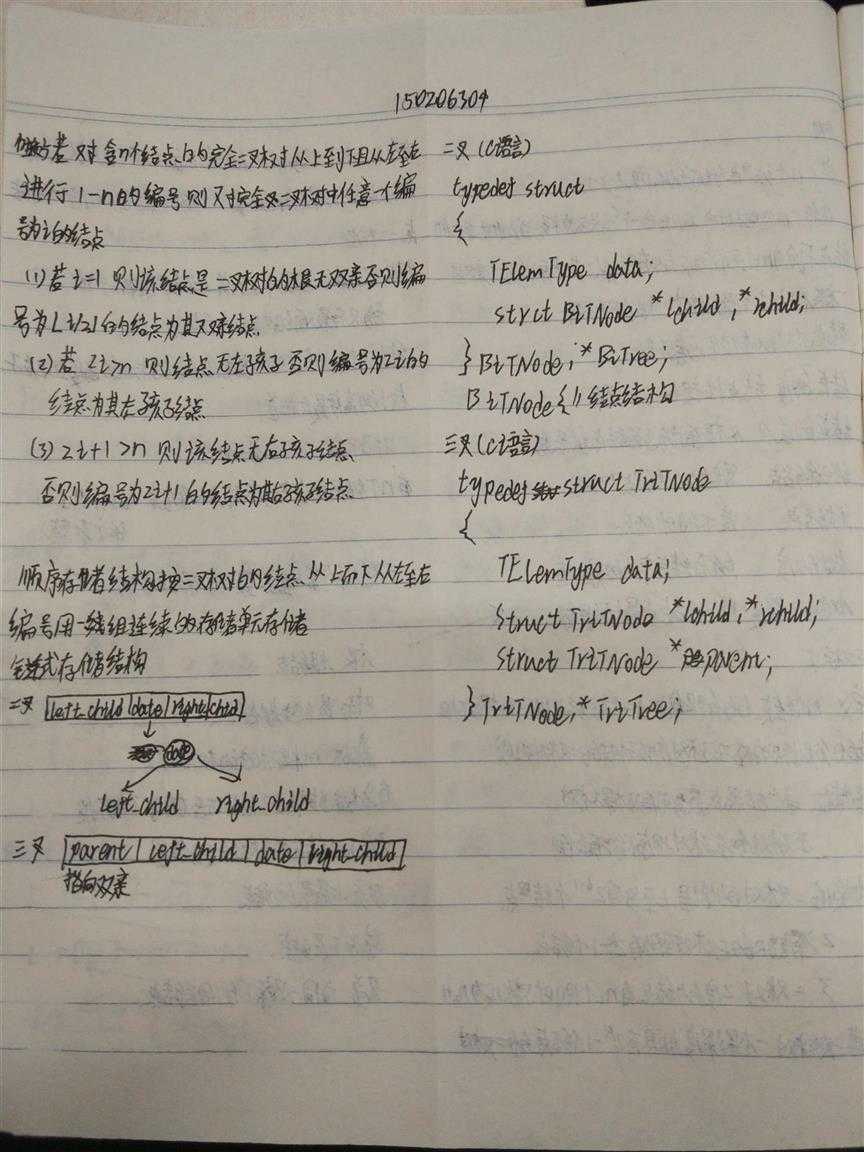 150206304
对含n个结点的完全二叉树从上到下且从左至右
进行1-n的编号则对完全二叉树中任意一个编
号为i的结点
(1)若i=1则该结点是二叉树的根无双亲否则编
号为⌊i/2⌋的结点为其双亲结点
(2)若2i>n则结点无左孩子否则编号为2i的
结点为其左孩子结点
(3)2i+1>n则该结点无右孩子结点
否则编号为2i+1的结点为其右孩子结点
顺序存储结构按二叉树的结点从上而下从左至右
编号用一组连续的存储单元存储
链式存储结构
二叉 left_child date right child
date
left_child right_child
三叉 parent left_child date right_child
指向双亲
二叉(C语言)
typedef struct
{
TElemType data;
struct BiTNode *lchild,*rchild;
}BiTNode,*BiTree;
BiTNode{//结点结构
三叉(C语言)
typedef struct TriTNode
{
TElemType data;
struct TriTNode *lchild,*rchild;
struct TriTNode *parent;
}TriTNode,*TriTree;